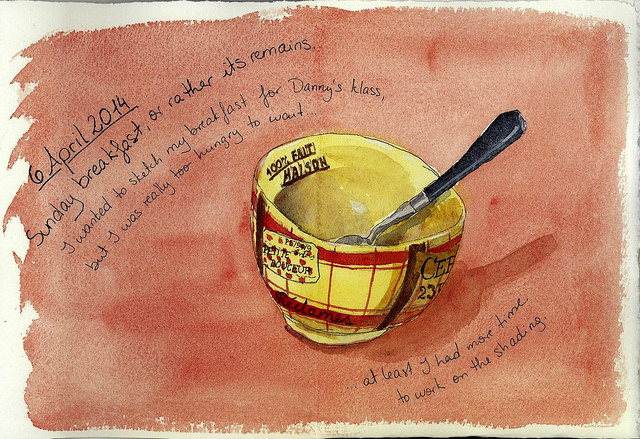 6 April 2014
Sunday breakfast, or rather its remains.
I wanted to sketch my breakfast for Danny's klass,
but I was really too hungry to wait...
100% FAIT
MAISON
PETITE
DOUCEUR
CER
235
... at least I had more time
to work on the shading